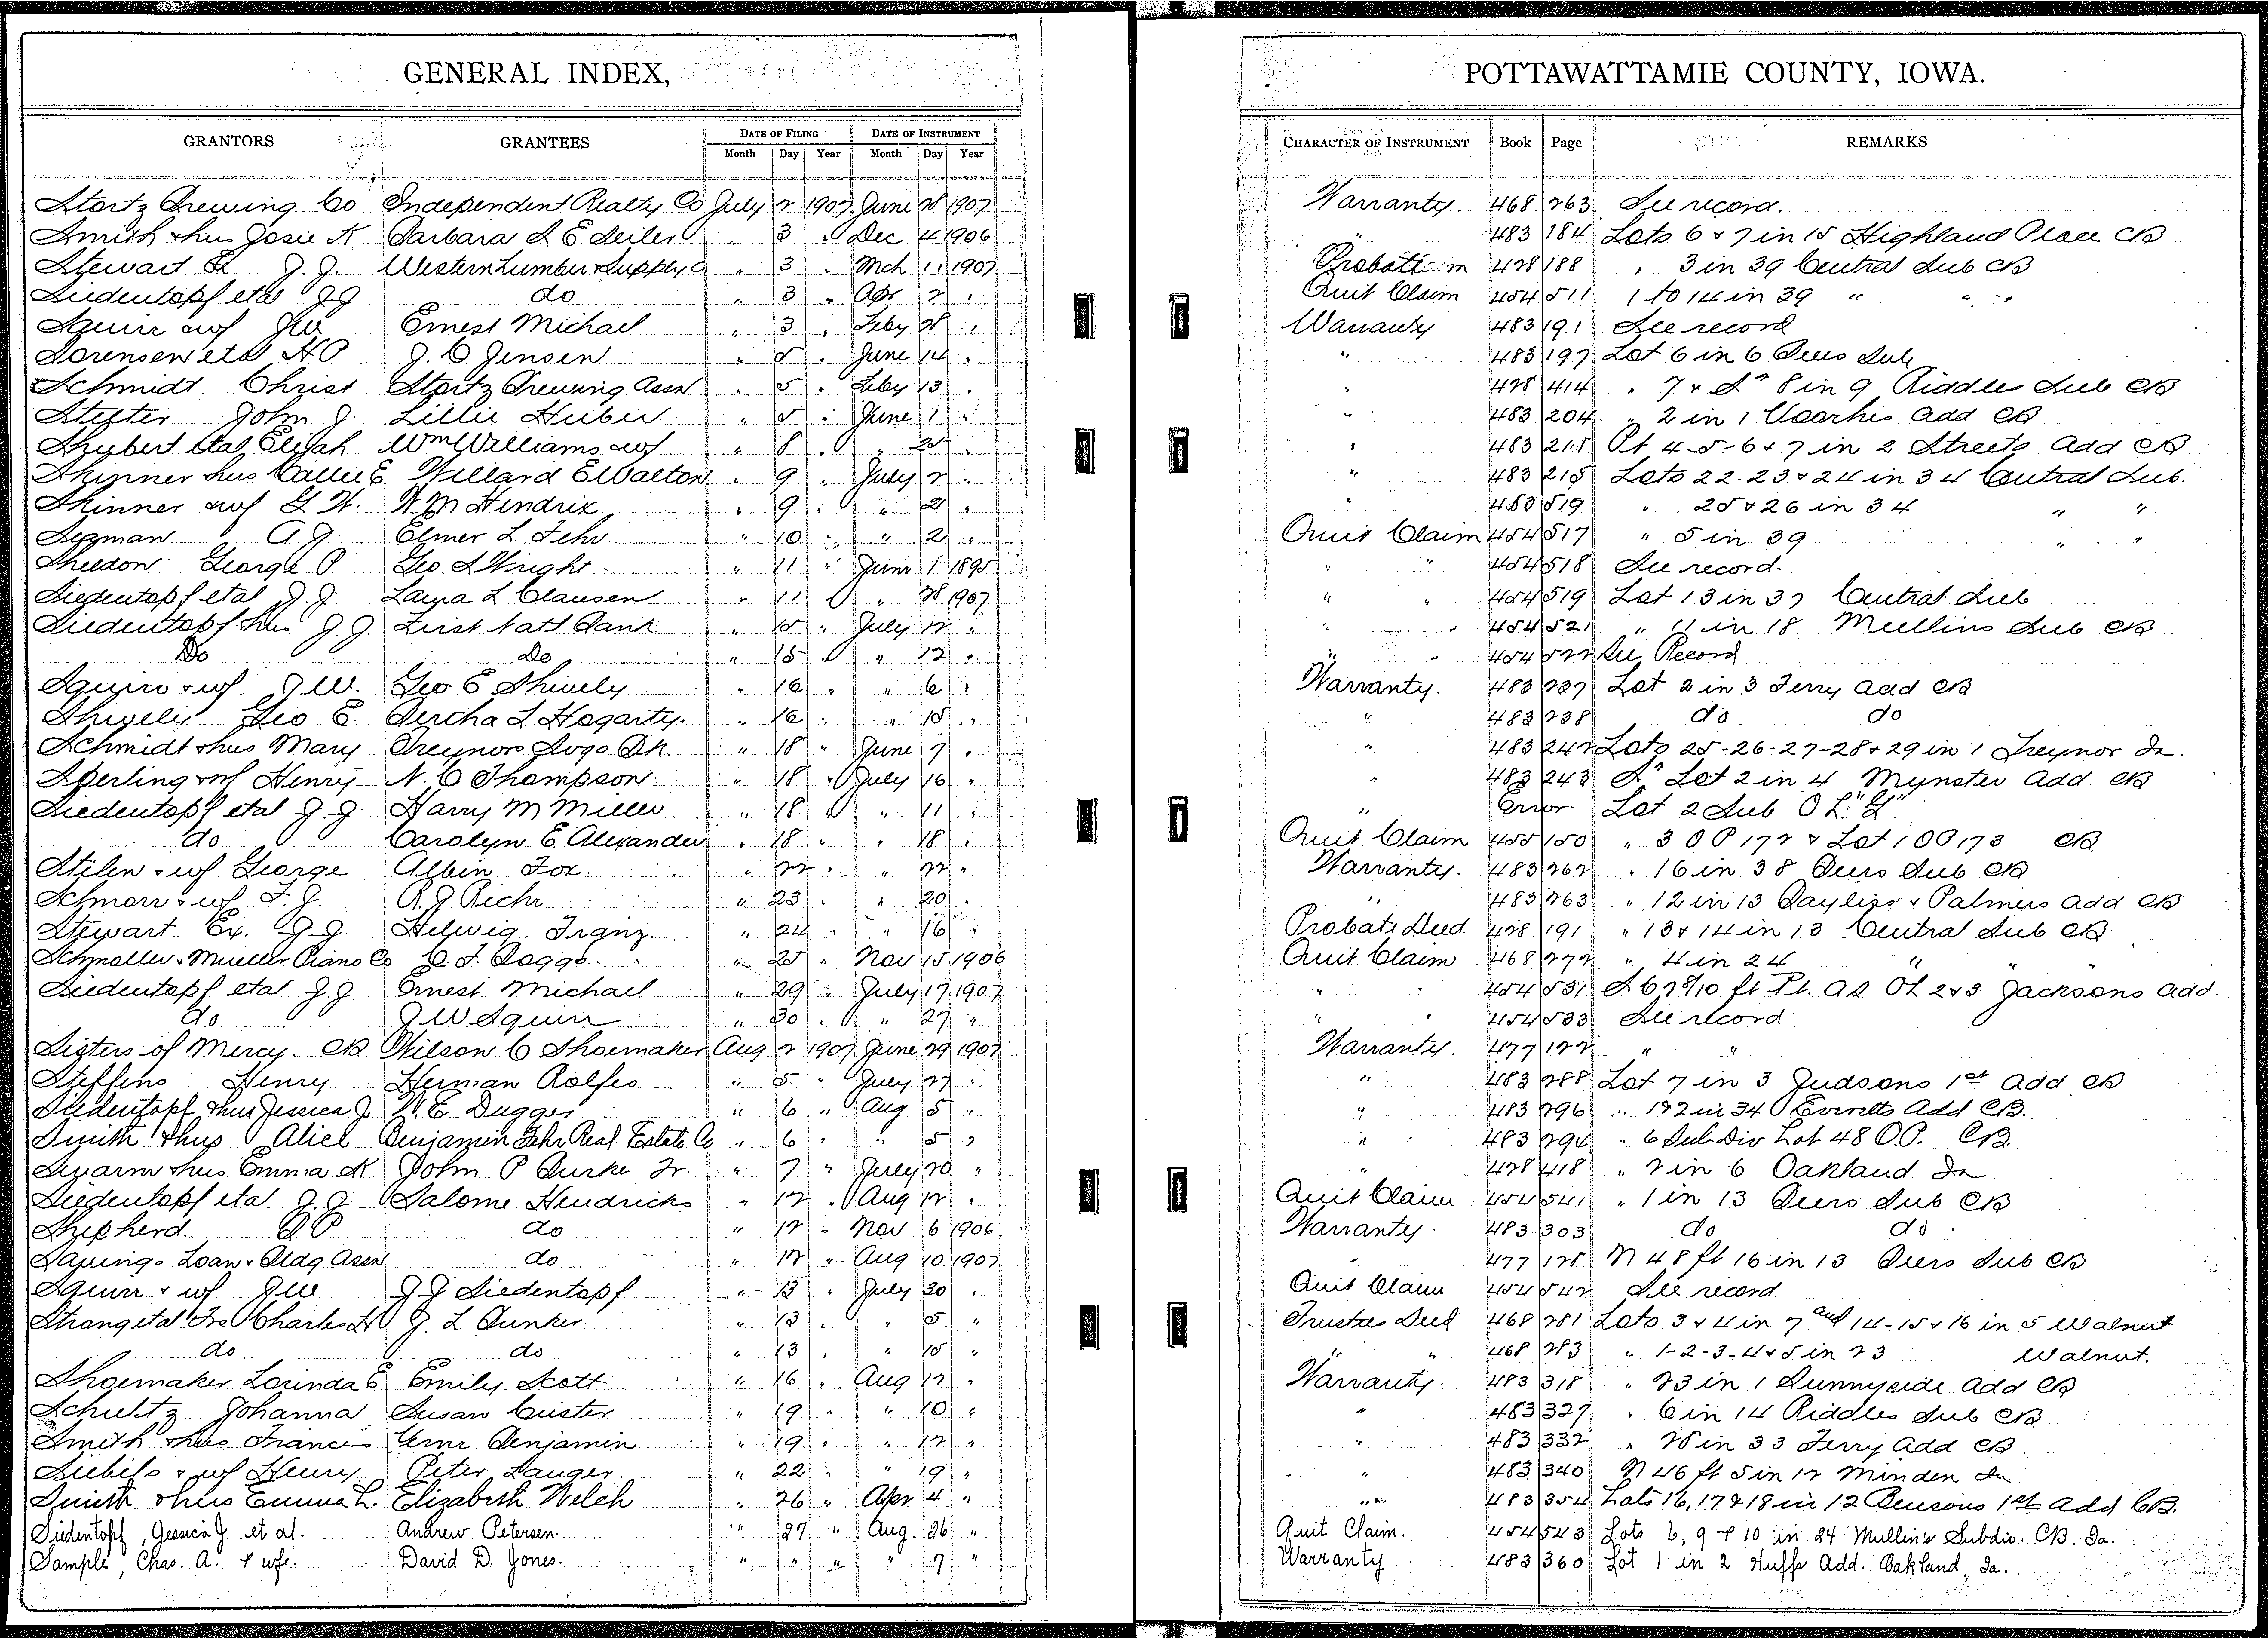 GENERAL INDEX,
POTTAWATTAMIE COUNTY, IOWA.
GRANTORS GRANTEES DATE OF FILING DATE OF INSTRUMENT CHARACTER OF INSTRUMENT Book Page REMARKS
Month Day Year Month Day Year
Stortz Brewing Co Independent Realty Co July 2 1907 June 28 1907 Warranty. 468 263 See record.
Smith & hus Josie K Barbara L E Seiler " 3 " Dec 4 1906 " 483 184 Lots 6 & 7 in 15 Highland Place CB
Stewart Ex J.J. Western Lumber & Supply Co " 3 " Mch 11 1907 428 188 " 3 in 39 Central Sub CB
Siedentopf etal JJ do " 3 " Apr 2 " Quit Claim 454 511 1 to 14 in 39 " " "
Squire & wf JW Ernest Michael " 3 " Feby 28 " Warranty 483 191 See record
Sorensen etal J. C Jensen " 5 " June 14 " " 483 197 Lot 6 in 6 Beers Sub
Schmidt Christ Stortz Brewing Assn " 5 " Feby 13 " " 428 414 " 7 & 8 in 9 Riddles Sub CB
John J. Lillie Huber " 5 " June 1 " " 483 204 " 2 in 1 Voorhis Add CB
Shubert etal Elijah Wm Williams & wf " 8 " " 25 " " 483 211 Pt 4-5-6 & 7 in 2 Streets Add CB
Skinner & hus Callie E Willard E Walton " 9 " July 2 " " 483 215 Lots 22-23 & 24 in 34 Central Sub.
Skinner & wf G. H. W M Hendrix " 9 " " 2 " " 519 " 25 & 26 in 34 " "
A.J. Elmer L. Fehr " 10 " " 2 " Quit Claim 454 517 " 5 in 39 " "
Sheldon George P Geo S Wright " 11 " June 1 1895 " " 454 518 See record.
Siedentopf etal J.J. Laura L Clausen " 11 " " 28 1907 " " 454 519 Lot 13 in 37 Central Sub
Siedentopf & hus J.J. First Natl Bank " 15 " July 12 " " " 454 521 " 11 in 18 Mullins Sub CB
Do do " 15 " " 12 " " " 454 522 See Record
Squire & wf J.W. Geo E Shively " 16 " " 6 " Warranty. 483 237 Lot 2 in 3 Terry Add CB
Shively Geo E. Bertha L. Hagarty. " 16 " " 15 " " 483 238 do do
Schmidt & hus Mary Treynor Svgs Bk. " 18 " June 7 " " 483 242 Lots 25-26-27-28 & 29 in 1 Treynor Ia.
Sperling & wf Henry N. C Thompson " 18 " July 16 " " 483 243 Lot 2 in 4 Mynster Add. CB
Siedentopf etal J.J. Harry M Miller " 18 " " 11 " " Error Lot 2 Sub O L. "G"
do Carolyn E Alexander " 18 " " 18 " Quit Claim 455 150 " 3 OP 172 & Lot 1 OP 173 CB
Stilen & wf George Albin Fox " 22 " " 22 " Warranty. 483 262 " 16 in 38 Beers Sub CB
Schnorr & wf F. J. " 23 " " 20 " " 483 263 " 12 in 13 Bayliss & Palmers Add CB
Stewart Ex. J.J. Helwig Franz " 24 " " 16 " Probate Deed 428 191 " 13 & 14 in 13 Central Sub CB
Schmoller & Mueller Piano Co C. F. Boggs. " 25 " Nov 15 1906 Quit Claim 468 272 " 4 in 24 " " "
Siedentopf etal J.J. Ernest Michael " 29 " July 17 1907 " " 454 531 ft Pt. OL 2 & 3 Jacksons Add.
do J W Squire " 30 " " 27 " " " 454 533 See record
Sisters of Mercy. CB Wilson C Shoemaker Aug 2 1907 June 29 1907 Warranty. 477 122 " "
Steffens Henry Herman Rolfes " 5 " July 27 " " 483 288 Lot 7 in 3 Judsons 1st Add CB
Siedentopf & hus Jessica J. W. E. Dugger " 6 " Aug 5 " " 483 296 " 1 & 2 in 34 Everetts Add CB.
Smith & hus Alice Benjamin Fehr Real Estate Co " 6 " " 5 " " 483 294 " 6 Sub Div Lot 48 O.P. CB.
Swarm & hus Emma K John P Burke Jr. " 7 " July 20 " " 428 418 " 2 in 6 Oakland Ia
Siedentopf etal J.J. Salome Hendricks " 12 " Aug 12 " Quit Claim 454 541 " 1 in 13 Beers Sub CB
Shepherd. do " 12 " Nov 6 1906 Warranty 483 303 do do
Saving Loan & Bldg Assn do " 12 " Aug 10 1907 " 477 128 N 48 ft 16 in 13 Beers Sub CB
Squire & wf JW J J Siedentopf " 13 " July 30 " Quit Claim 454 542 See record
Strang etal Trs Charles H J. L Bunker. " 13 " " 5 " Trustees Deed 468 281 Lots 3 & 4 in 7 and 14-15 & 16 in 5 Walnut
do do " 13 " " 15 " " " 468 283 " 1-2-3-4 & 5 in 23 Walnut.
Shoemaker Lorinda E Emily Scott " 16 " Aug 12 " Warranty. 483 318 " 23 in 1 Sunnyside Add CB
Schultz Johanna Susan Custer " 19 " " 10 " " 483 327 " 6 in 14 Riddles Sub CB
Smith & hus Frances Benjamin " 19 " " 12 " " 483 332 " 28 in 33 Ferry Add CB
Siebels & wf Henry Peter Langer " 22 " " 19 " " 483 340 N 46 ft 5 in 12 Minden Ia
Smith & hus Emma L. Elizabeth Welch " 26 " Apr 4 " " 483 354 Lots 16, 17 & 18 in 12 Bensons 1st Add CB.
Siedentopf, Jessica J et al. Andrew Petersen. " 27 " Aug. 26 " Quit Claim. 454 543 Lots 6, 9 & 10 in 24 Mullin's Subdiv. CB. Ia.
Sample, Chas. A. & wfe. David D. Jones. " " " " 7 " Warranty 483 360 Lot 1 in 2 Huffs Add. Oakland, Ia.